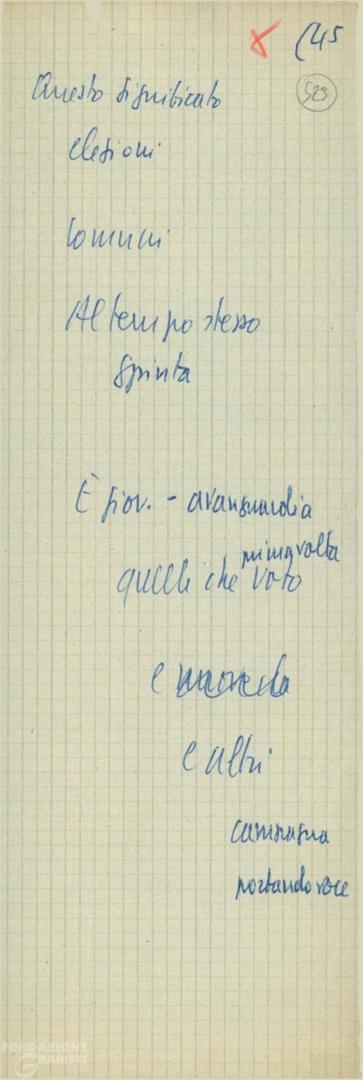 (45
529
Questo significato
elezioni
Comuni
Al tempo stesso
spinta
È giov. - avanguardia
prima volta
quelli che voto
e
e altri
campagna
portando voce
FONDAZIONE
GRAMSCI